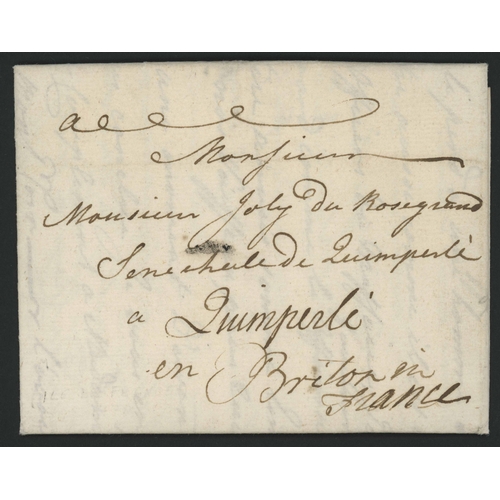 a
Monsieur
Monsieur Joly du Rosegrand
Senechele de Quimperlé
a Quimperlé
en Briton en
France